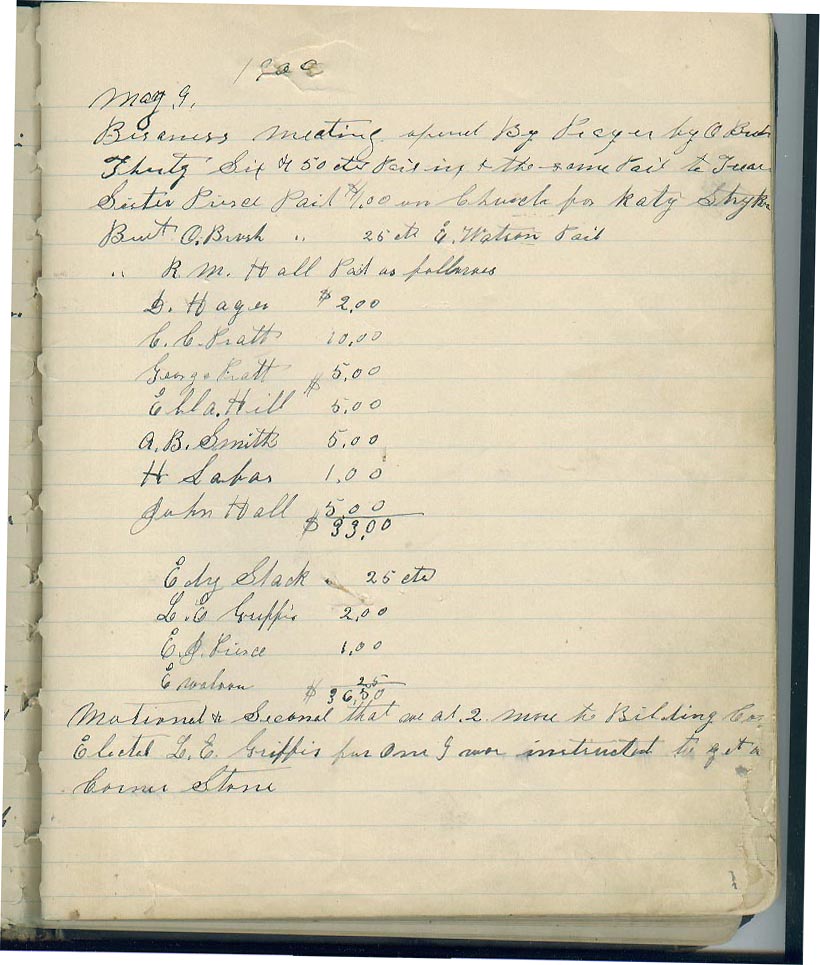 1909
May 9.
Bisness meeting opend By Prayer by O
Thirty Six & 50 cts Paid in & the same Paid to
Sister Pierce Paid $1,00 on Church for Katy
O. Brush " 25 cts E. Watson Paid
" R. M. Hall Paid as follows
D. Hager $2,00
C. C. Pratt 10,00
George Pratt 5,00
Ella. Hill $5,00
A. B. Smith 5,00
H Labar 1,00
John Hall 5,00
$33,00
Edy Stack " 25 cts
L. E Griffis 2,00
E. J. Pierce 1,00
E watson 25
$36,50
Motiond & Second that we ad. 2. more to Bilding
Elected L. E. Griffis for one I was instructed to get a
Corner Stone